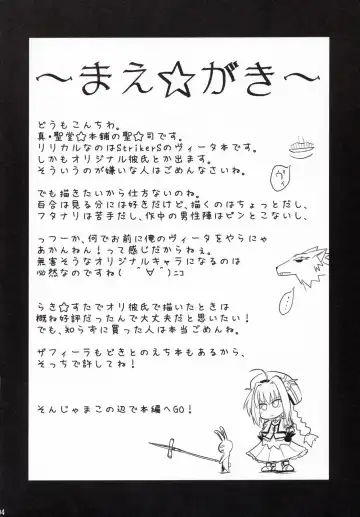 ～まえ☆がき～
どうもこんちわ。
真・聖堂☆本舗の聖☆司です。
リリカルなのはStrikerSのヴィータ本です。
しかもオリジナル彼氏とか出ます。
そういうのが嫌いな人はごめんなさいね。
でも描きたいから仕方ないのね。
百合は見る分には好きだけど、描くのはちょっとだし、
フタナリは苦手だし、作中の男性陣はピンとこないし、
っつーか、何でお前に俺のヴィータをやらにゃ
あかんねん！って感じだからねぇ。
無害そうなオリジナルキャラになるのは
必然なのですね(　ﾟ∀ﾟ)ﾆｺ
らき☆すたでオリ彼氏で描いたときは
概ね好評だったんで大丈夫だと思いたい！
でも、知らずに買った人は本当ごめんね。
ザフィーラもどきとのえち本もあるから、
そっちで許してね！
そんじゃまこの辺で本編へGO！
ヴィ
…
04